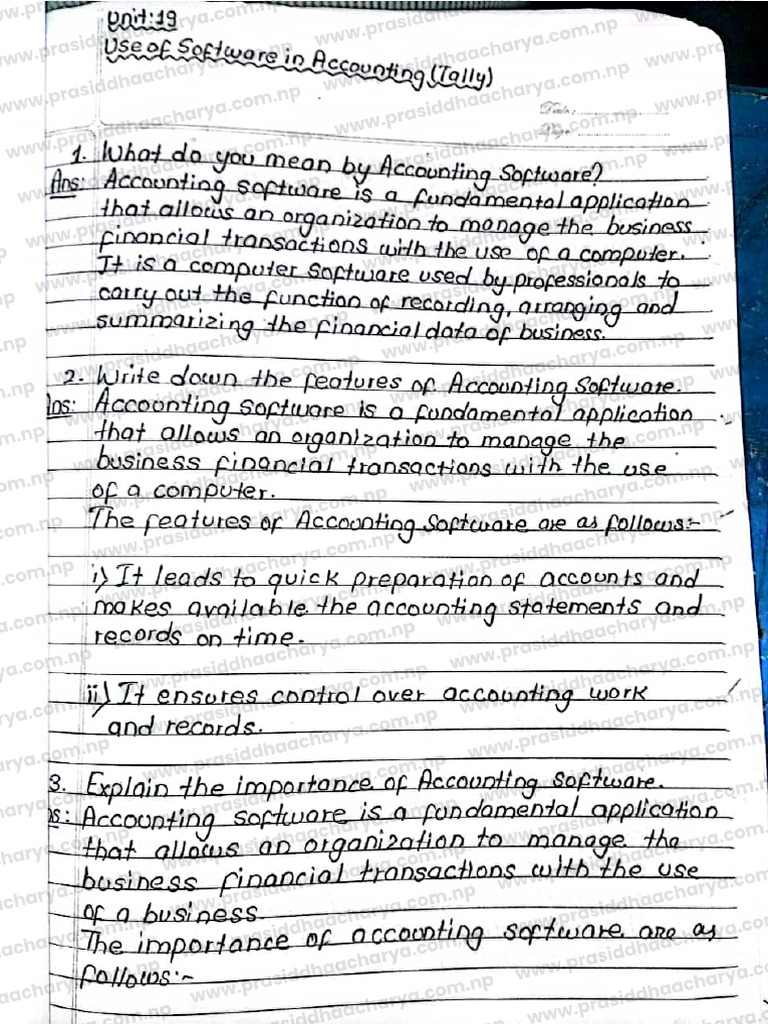 Unit:19
Use of Software in Accounting (Tally)
Date:
Page:
1. What do you mean by Accounting Software?
Ans: Accounting software is a fundamental application
that allows an organization to manage the business
financial transactions with the use of a computer.
It is a computer software used by professionals to
carry out the function of recording, arranging and
summarizing the financial data of business.
2. Write down the features of Accounting Software.
Ans: Accounting software is a fundamental application
that allows an organization to manage the
business financial transactions with the use
of a computer.
The features of Accounting Software are as follows:-
i) It leads to quick preparation of accounts and
makes available the accounting statements and
records on time.
ii) It ensures control over accounting work
and records.
3. Explain the importance of Accounting software.
Ans: Accounting software is a fundamental application
that allows an organization to manage the
business financial transactions with the use
of a business
The importance of accounting software are as
follows:-
www.prasiddhaacharya.com.np